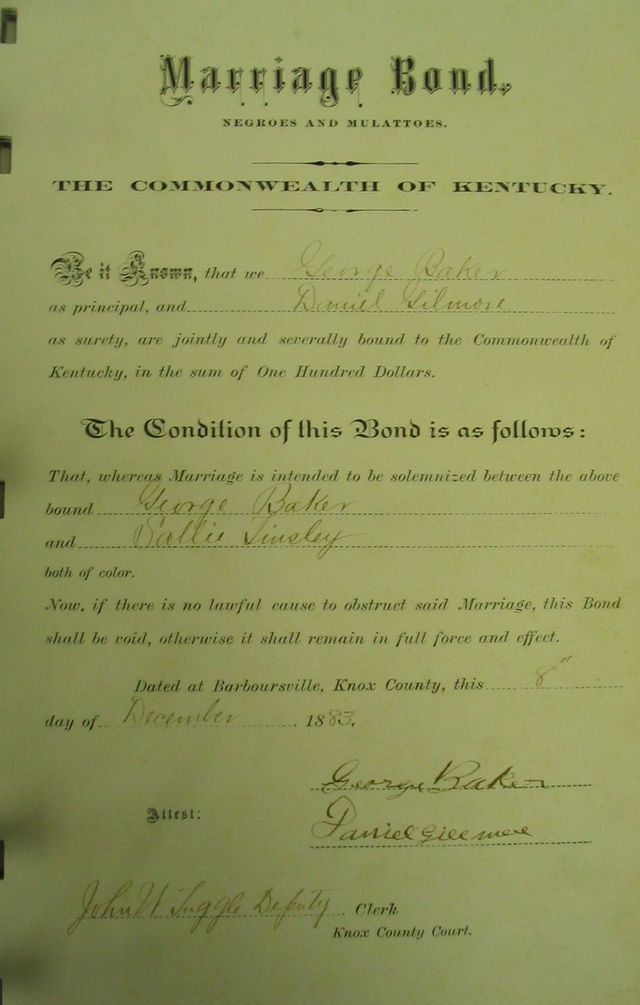 Marriage Bond.
NEGROES AND MULATTOES.
THE COMMONWEALTH OF KENTUCKY.
Be it Known, that we George Baker
as principal, and Daniel Gilmore
as surety, are jointly and severally bound to the Commonwealth of
Kentucky, in the sum of One Hundred Dollars.
The Condition of this Bond is as follows:
That, whereas Marriage is intended to be solemnized between the above
bound George Baker
and Sallie Tinsley
both of color.
Now, if there is no lawful cause to obstruct said Marriage, this Bond
shall be void, otherwise it shall remain in full force and effect.
Dated at Barboursville, Knox County, this 8"
day of December 1883.
George Baker
Attest:
Daniel Gillmore
John W Tuggle Deputy Clerk
Knox County Court.